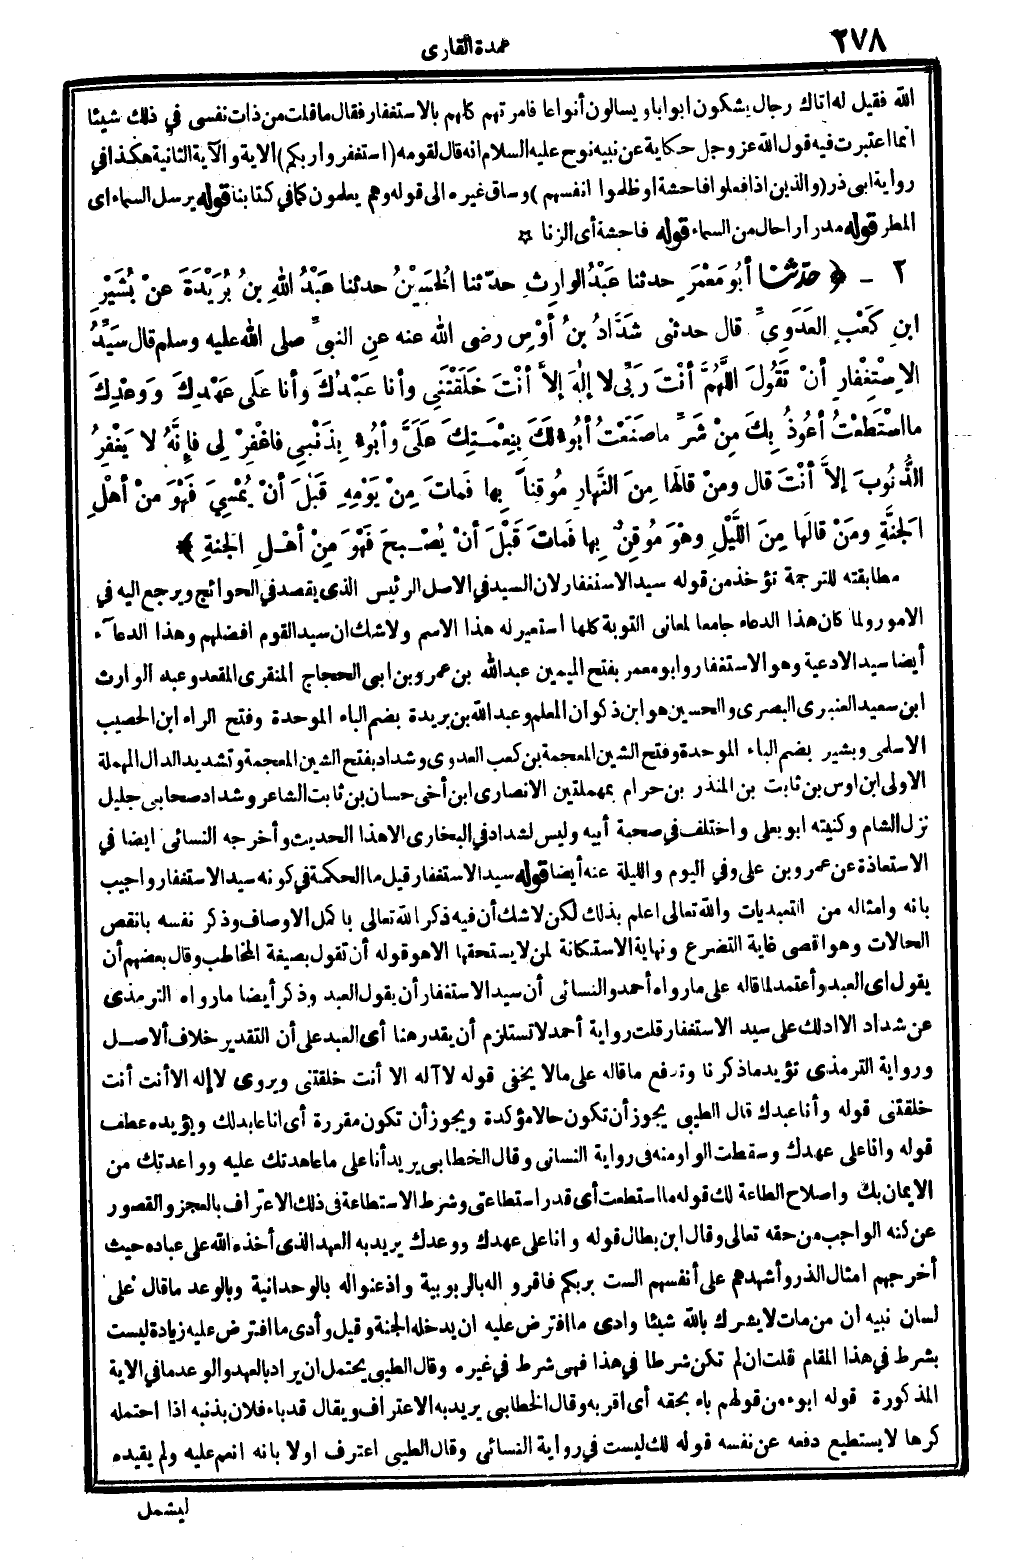 ٢٧٨
عمدة القارى
الله فقيل له اتاك رجال يشكون ابوابا ويسالون أنواعا فامرتهم كلهم بالاستغفار فقال ماقلت من ذات نفسى في ذلك شيئا
انما اعتبرت فيه قول الله عز وجل حكاية عن نبيه نوح عليه السلام انه قال لقومه (استغفروا ربكم) الاية والآية الثانية هكذا في
رواية ابى ذر (والذين اذا فعلوا فاحشة او ظلموا انفسهم) وساق غيره الى قوله وهم يعلمون كما في كتابنا قوله يرسل السماء اى
المطر قوله مدرارا حال من السماء قوله فاحشة أى الزنا ✩
٢ - ﴿ حَدَّثَنَا أَبُو مَعْمَرٍ حدثنا عَبْدُ الوارِثِ حدّثنا الْحُسَيْنُ حدثنا عَبْدُ اللهِ بنُ بُرَيْدَةَ عنْ بُشَيْرِ
ابنِ كَعْبٍ العَدَوِيِّ قال حدثنى شَدَّادُ بنُ أَوْسٍ رضى الله عنه عنِ النبيِّ صلى الله عليه وسلم قال سَيِّدُ
الاِسْتِغْفارِ أنْ تَقُولَ اللَّهُمَّ أنْتَ رَبِّى لا إلٰهَ إلاَّ أنْتَ خَلَقْتَنِي وأنا عَبْدُكَ وأنا عَلَى عَهْدِكَ وَوَعْدِكَ
ما اسْتَطَعْتُ أعُوذُ بِكَ مِنْ شَرِّ ما صَنَعْتُ أبُوءُ لَكَ بِنِعْمَتِكَ عَلَيَّ وأبُوءُ بِذَنْبِي فاغْفِرْ لِى فإنَّهُ لا يَغْفِرُ
الذُّنُوبَ إلاَّ أنْتَ قال ومنْ قالَها مِنَ النَّهارِ مُوقِناً بِها فَماتَ مِنْ يَوْمِهِ قَبْلَ أنْ يُمْسِيَ فَهْوَ مِنْ أهْلِ
الجَنَّةِ ومَنْ قالَها مِنَ اللَّيْلِ وهْوَ مُوقِنٌ بِها فَماتَ قَبْلَ أنْ يُصْبِحَ فَهْوَ مِنْ أهْلِ الجنةِ ﴾
مطابقته للترجمة تؤخذ من قوله سيد الاستغفار لان السيد في الاصل الرئيس الذى يقصد في الحوائج ويرجع اليه في
الامور ولما كان هذا الدعاء جامعا لمعانى التوبة كلها استعير له هذا الاسم ولا شك ان سيد القوم افضلهم وهذا الدعاء
أيضا سيد الادعية وهو الاستغفار وابو معمر بفتح الميمين عبد الله بن عمرو بن ابى الحجاج المنقرى المقعد وعبد الوارث
ابن سعيد العنبرى البصرى والحسين هو ابن ذكوان المعلم وعبد الله بن بريدة بضم الباء الموحدة وفتح الراء ابن الحصيب
الاسلمى وبشير بضم الباء الموحدة وفتح الشين المعجمة بن كعب العدوى وشداد بفتح الشين المعجمة وتشديد الدال المهملة
الاولى ابن اوس بن ثابت بن المنذر بن حرام بمهملتين الانصارى ابن أخى حسان بن ثابت الشاعر وشداد صحابى جليل
نزل الشام وكنيته ابو يعلى واختلف في صحبة أبيه وليس لشداد في البخارى الا هذا الحديث وأخرجه النسائى ايضا في
الاستعاذة عن عمرو بن على وفي اليوم والليلة عنه أيضا قوله سيد الاستغفار قيل ما الحكمة في كونه سيد الاستغفار واجيب
بانه وامثاله من التعبديات والله تعالى اعلم بذلك لكن لا شك أن فيه ذكر الله تعالى باكمل الاوصاف وذكر نفسه بانقص
الحالات وهو اقصى غاية التضرع ونهاية الاستكانة لمن لا يستحقها الا هو قوله أن تقول بصيغة المخاطب وقال بعضهم أن
يقول اى العبد وأعتمد لما قاله على ما رواه أحمد والنسائى أن سيد الاستغفار أن يقول العبد وذكر أيضا ما رواه الترمذى
عن شداد الا ادلك على سيد الاستغفار قلت رواية أحمد لا تستلزم أن يقدر هنا أى العبد على أن التقدير خلاف الأصل
ورواية الترمذى تؤيد ما ذكرنا وتدفع ما قاله على ما لا يخفى قوله لا آله الا أنت خلقتنى ويروى لا إله الا أنت أنت
خلقتنى قوله وأنا عبدك قال الطيبى يجوز أن تكون حالا مؤكدة ويجوز أن تكون مقررة أى انا عابد لك ويؤيده عطف
قوله وانا على عهدك وسقطت الواو منه فى رواية النسائى وقال الخطابى يريد أنا على ما عاهدتك عليه وواعدتك من
الايمان بك واصلاح الطاعة لك قوله ما استطعت أى قدر استطاعتى وشرط الاستطاعة فى ذلك الاعتراف بالعجز والقصور
عن كنه الواجب من حقه تعالى وقال ابن بطال قوله وانا على عهدك ووعدك يريد به العهد الذى أخذه الله على عباده حيث
أخرجهم امثال الذر وأشهدهم على أنفسهم الست بربكم فاقروا له بالربوبية واذعنوا له بالوحدانية وبالوعد ما قال على
لسان نبيه ان من مات لا يشرك بالله شيئا وادى ما افترض عليه ان يدخله الجنة وقيل وأدى ما افترض عليه زيادة ليست
بشرط في هذا المقام قلت ان لم تكن شرطا في هذا فهى شرط في غيره وقال الطيبى يحتمل ان يراد بالعهد والوعد ما في الاية
المذكورة قوله ابوء من قولهم باء بحقه أى اقر به وقال الخطابى يريد به الاعتراف ويقال قد باء فلان بذنبه اذا احتمله
كرها لا يستطيع دفعه عن نفسه قوله لك ليست في رواية النسائى وقال الطيبى اعترف اولا بانه انعم عليه ولم يقيده
ليشمل